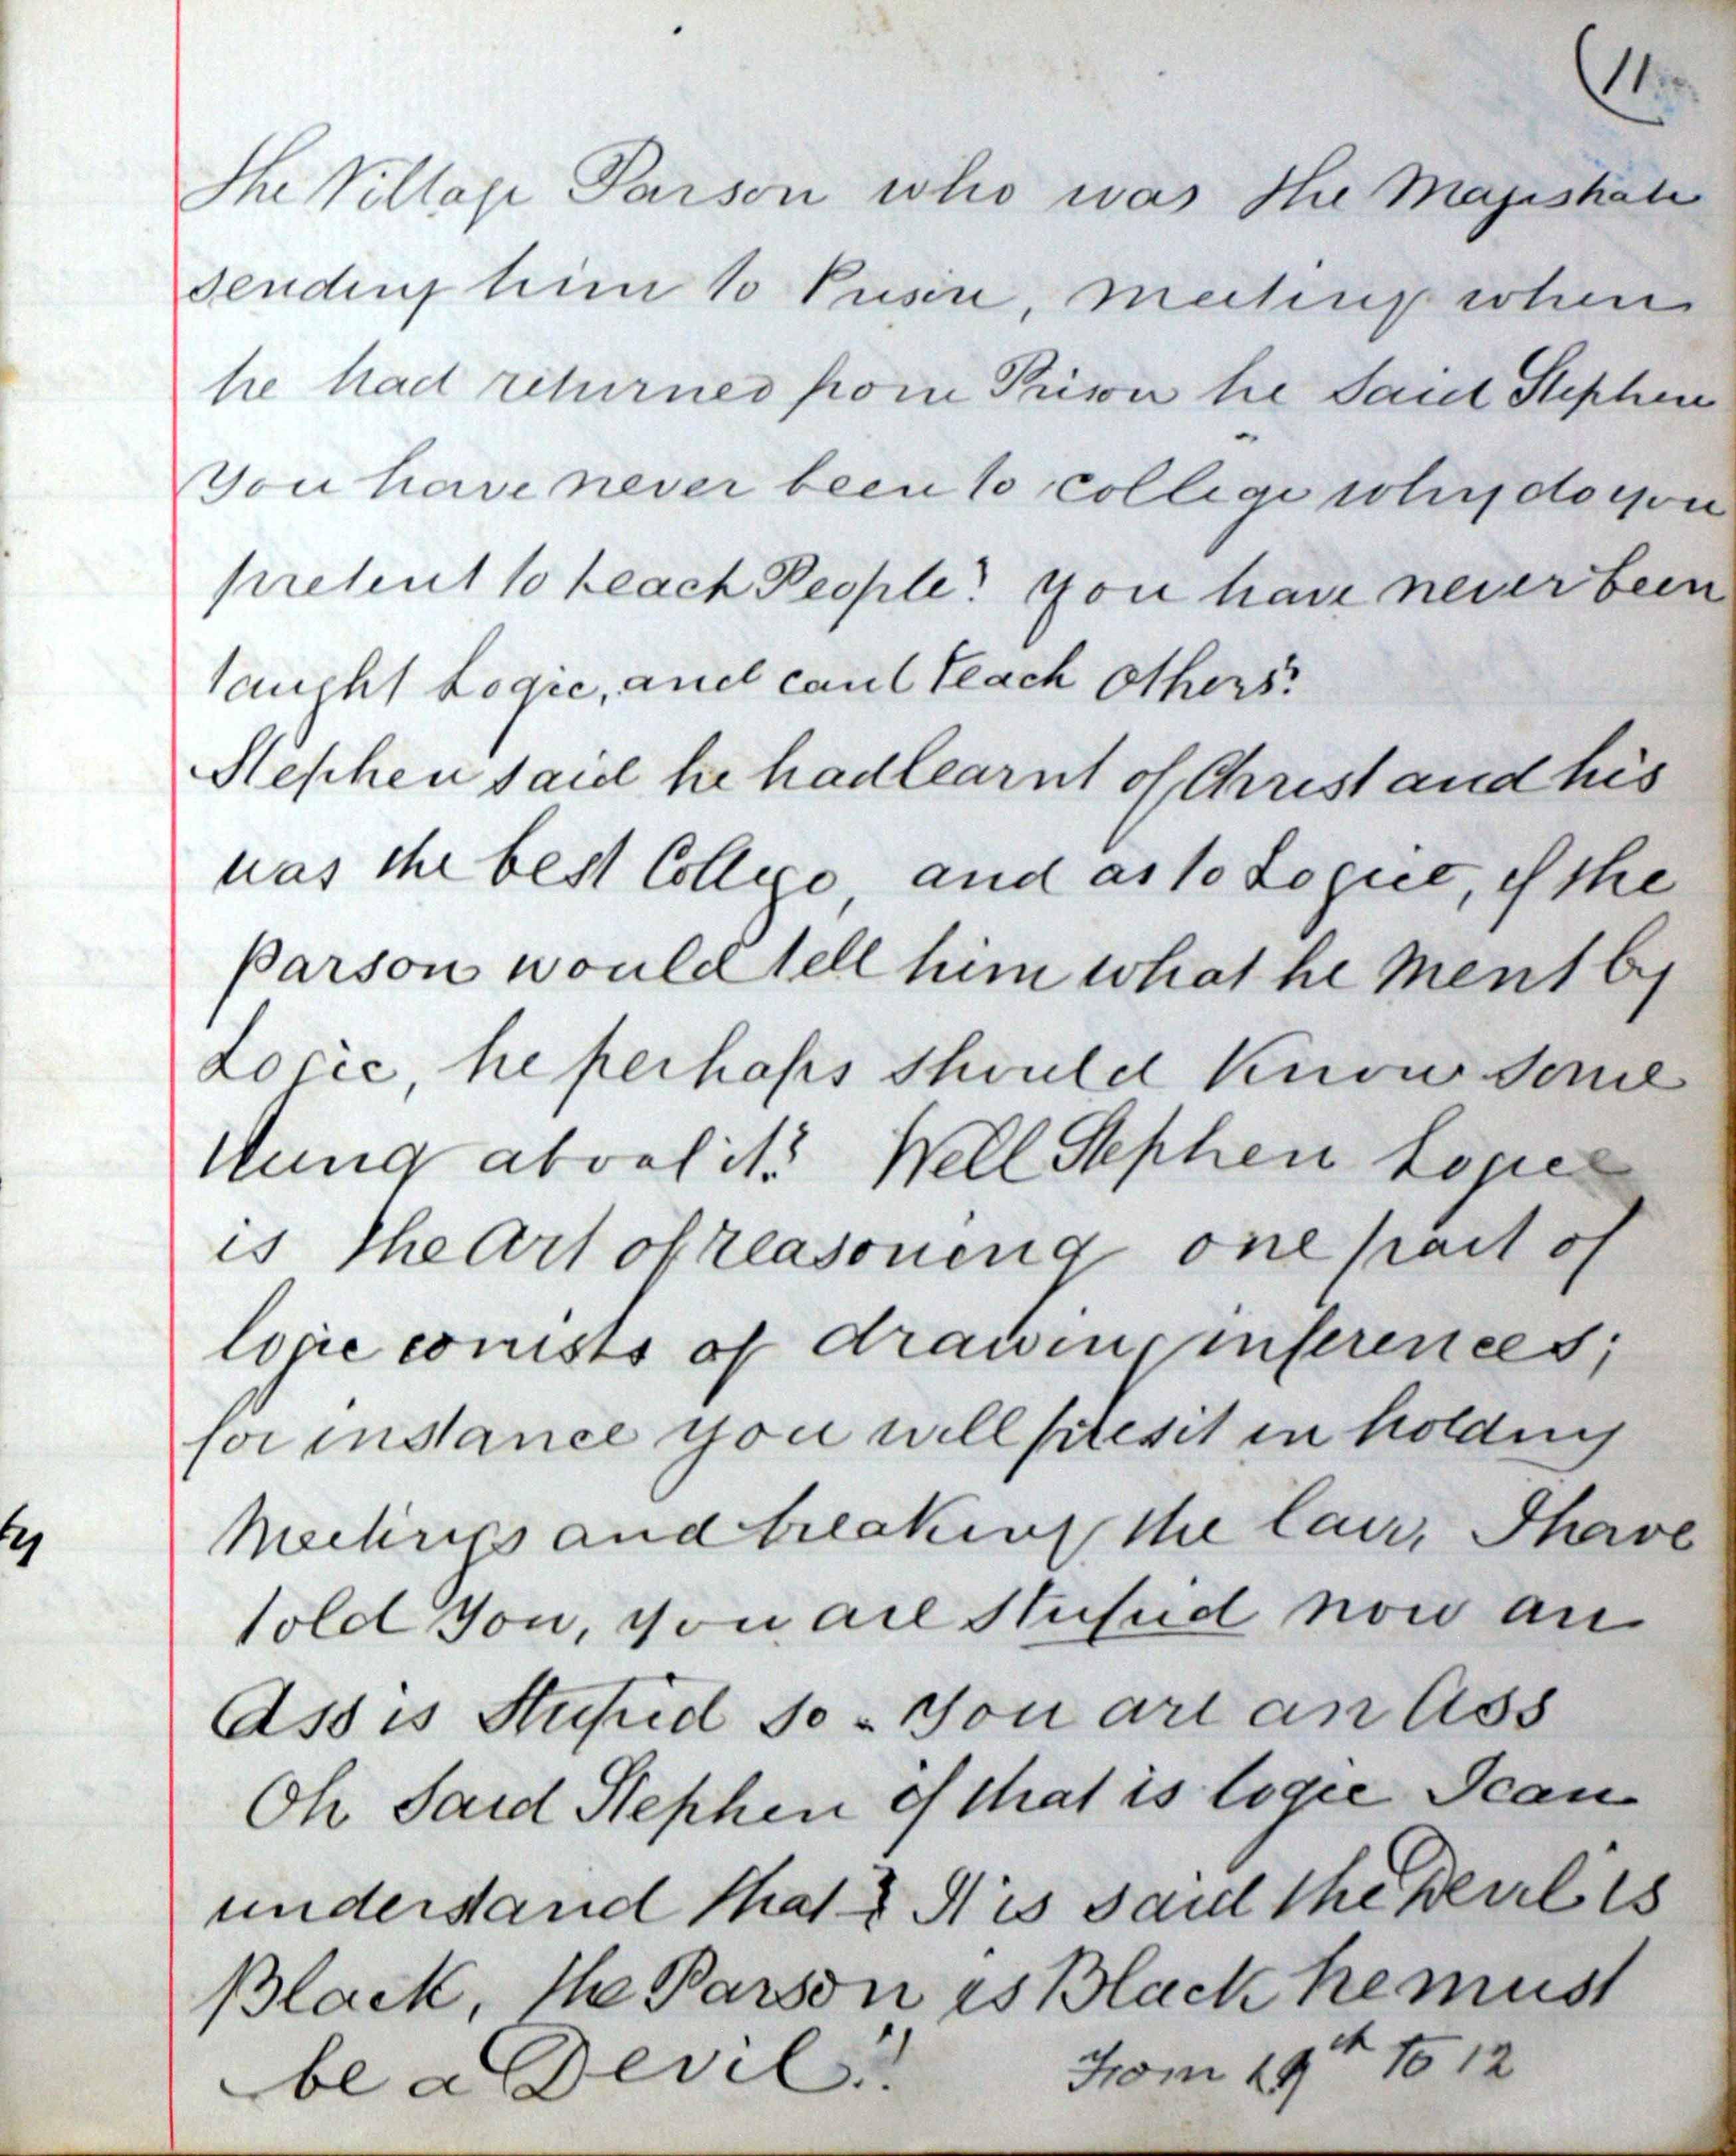 (11
The Village Parson who was the Magistrate
sending him to Prison, meeting when
he had returned from Prison he said Stephen
You have never been to college why do you
pretent to teach People? you have never been
taught Logic, and cant teach others?
Stephen said he had learnt of Christ and his
was the best College, and as to Logic, if the
parson would tell him what he ment by
Logic, he perhaps should know some
thing about it? Well Stephen Logic
is the Art of reasoning one part of
logic consists of drawing inferences;
for instance you will presit in holding
Meetings and breaking the law, I have
told you, you are stupid now an
Ass is Stupid so - you are an Ass
Oh Said Stephen if that is logic I can
understand that? It is said the Devil is
Black, the Parson is Black he must
be a Devil!!
From 19th to 12